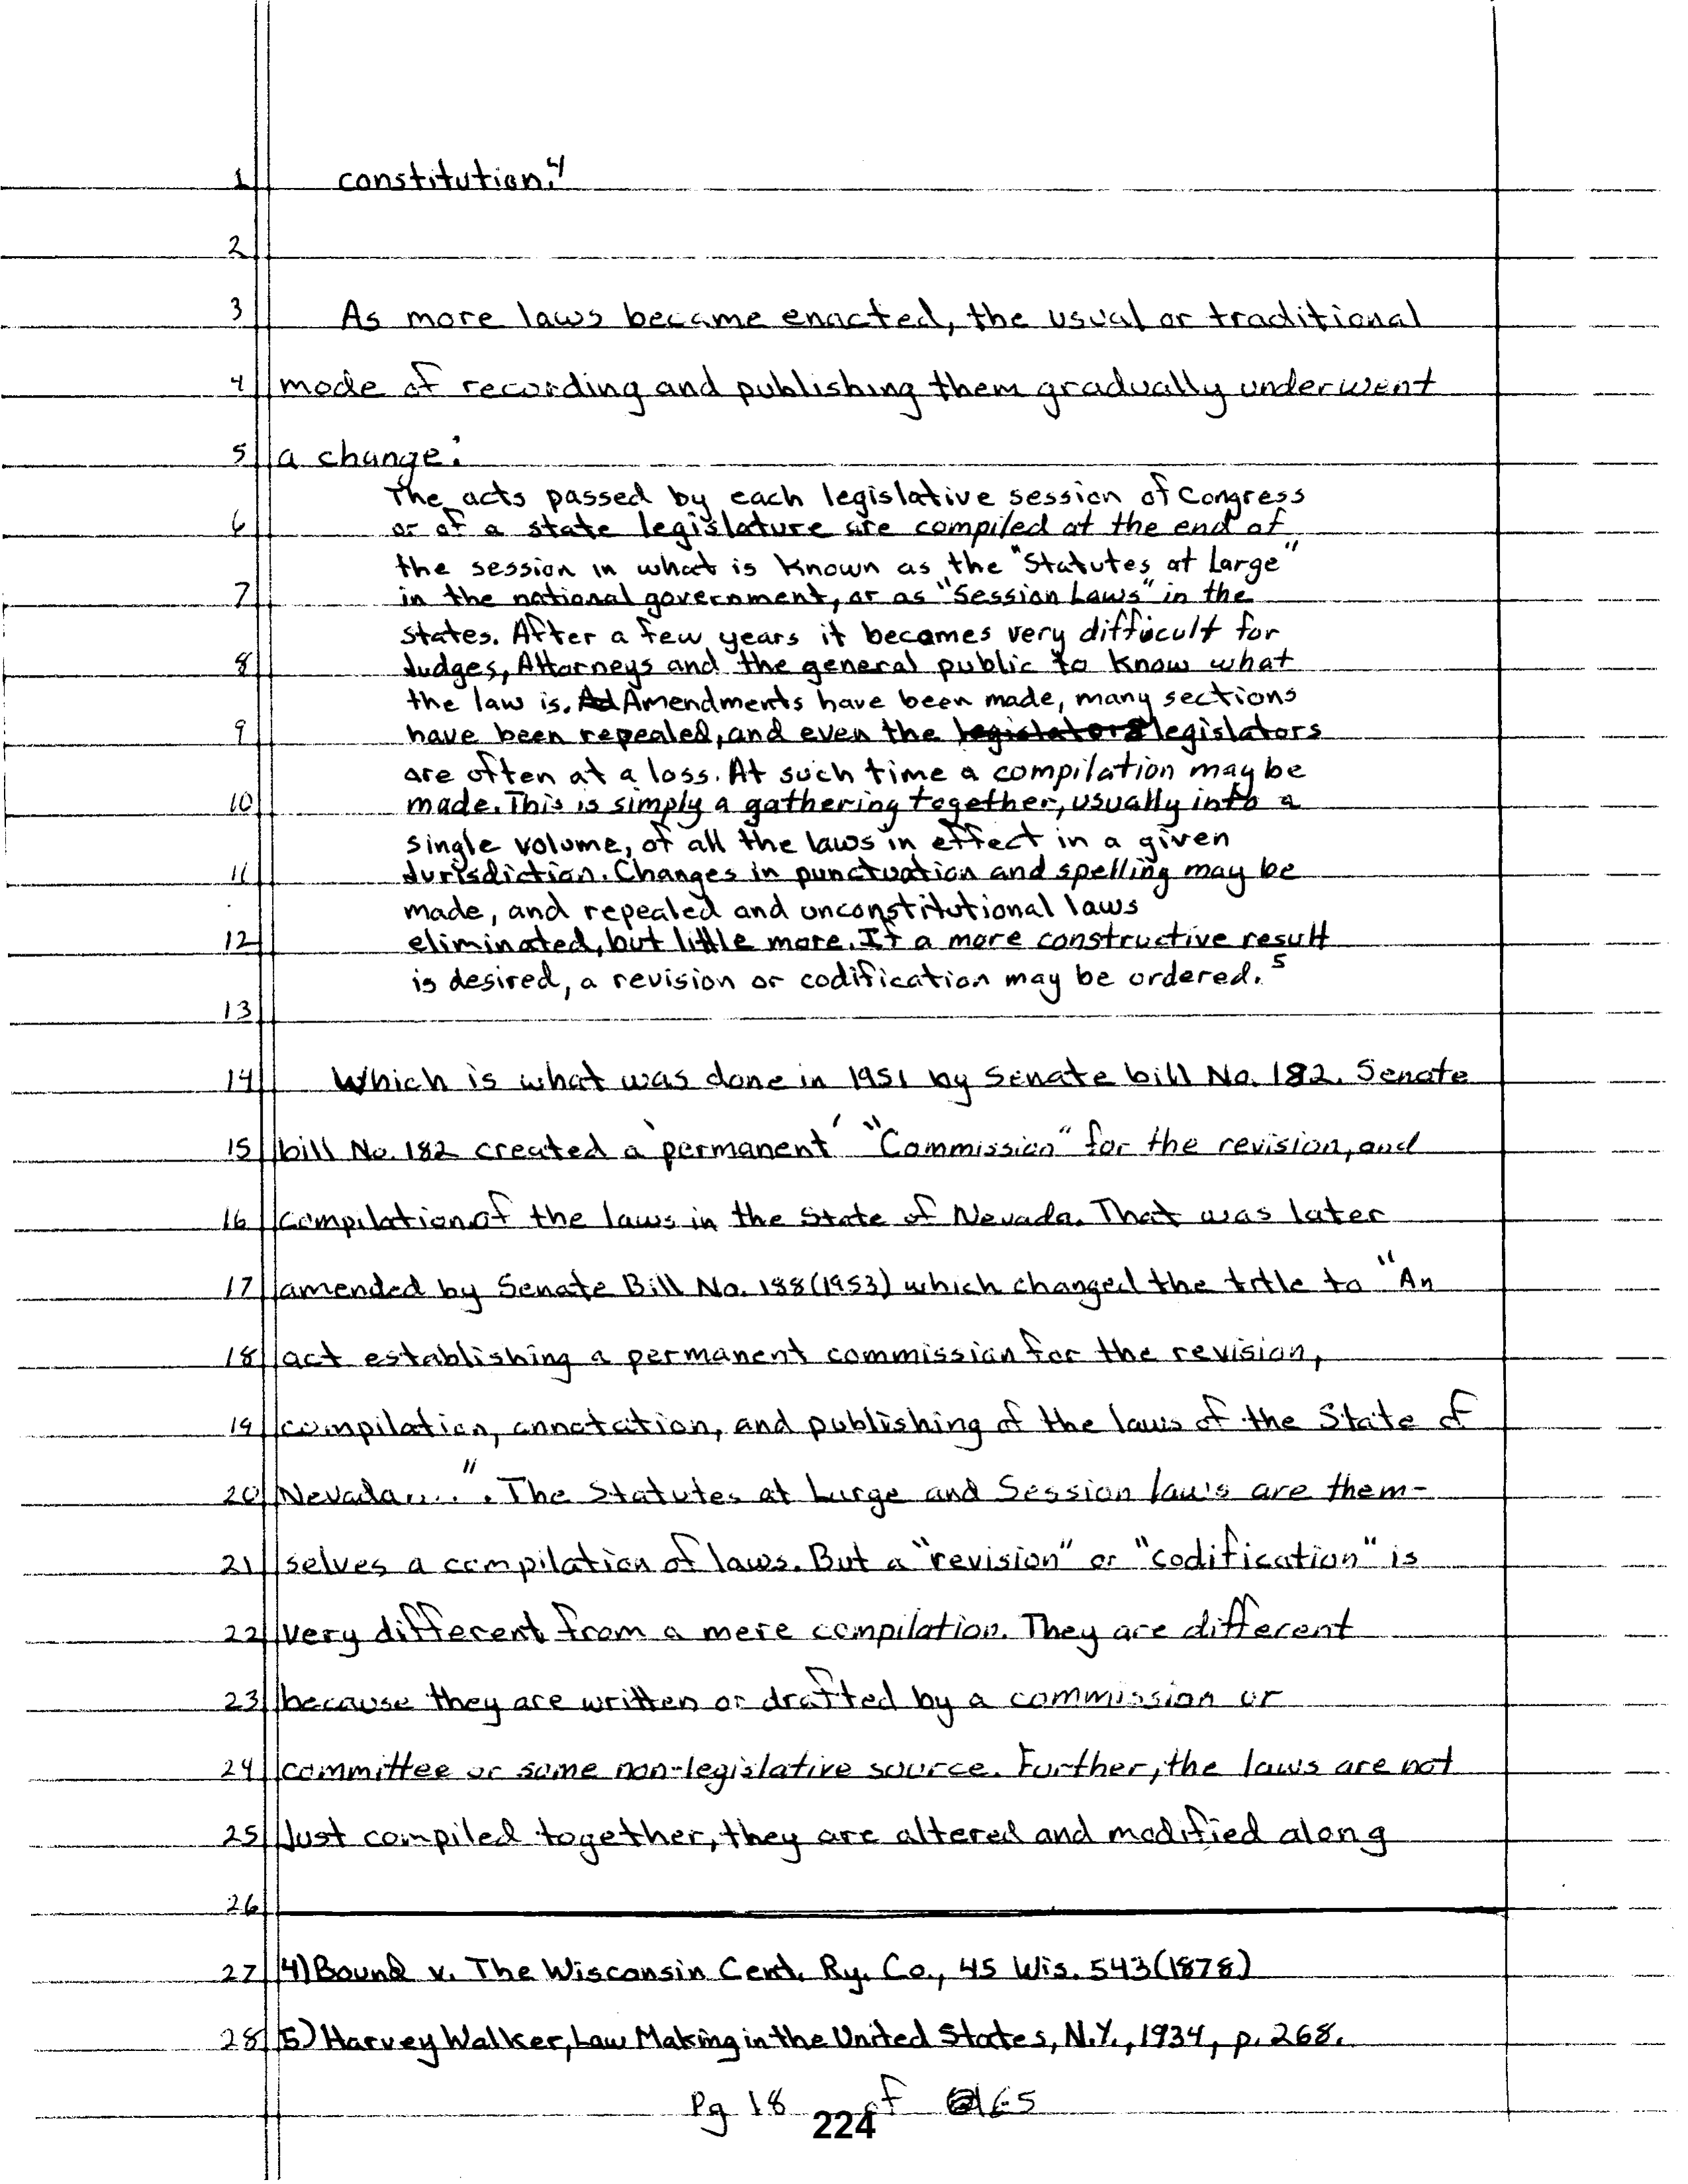 1 constitution.4
2
3 As more laws became enacted, the usual or traditional
4 mode of recording and publishing them gradually underwent
5 a change:
The acts passed by each legislative session of Congress
6 or of a state legislature are compiled at the end of
the session in what is known as the "Statutes at Large"
7 in the national government, or as "Session Laws" in the
states. After a few years it becomes very difficult for
8 Judges, Attorneys and the general public to know what
the law is. Ad Amendments have been made, many sections
9 have been repealed, and even the legislators legislators
are often at a loss. At such time a compilation may be
10 made. This is simply a gathering together, usually into a
single volume, of all the laws in effect in a given
11 Jurisdiction. Changes in punctuation and spelling may be
made, and repealed and unconstitutional laws
12 eliminated, but little more. If a more constructive result
is desired, a revision or codification may be ordered.5
13
14 Which is what was done in 1951 by Senate bill No. 182. Senate
15 bill No. 182 created a 'permanent' "Commission" for the revision, and
16 compilation of the laws in the State of Nevada. That was later
17 amended by Senate Bill No. 188 (1953) which changed the title to "An
18 act establishing a permanent commission for the revision,
19 compilation, annotation, and publishing of the laws of the State of
20 Nevada....". The Statutes at Large and Session laws are them-
21 selves a compilation of laws. But a "revision" or "codification" is
22 very different from a mere compilation. They are different
23 because they are written or drafted by a commission or
24 committee or some non-legislative source. Further, the laws are not
25 Just compiled together, they are altered and modified along
26
27 4) Bound v. The Wisconsin Cent. Ry. Co., 45 Wis. 543 (1878)
28 5) Harvey Walker, Law Making in the United States, N.Y., 1934, p. 268.
Pg 18 of 65
224